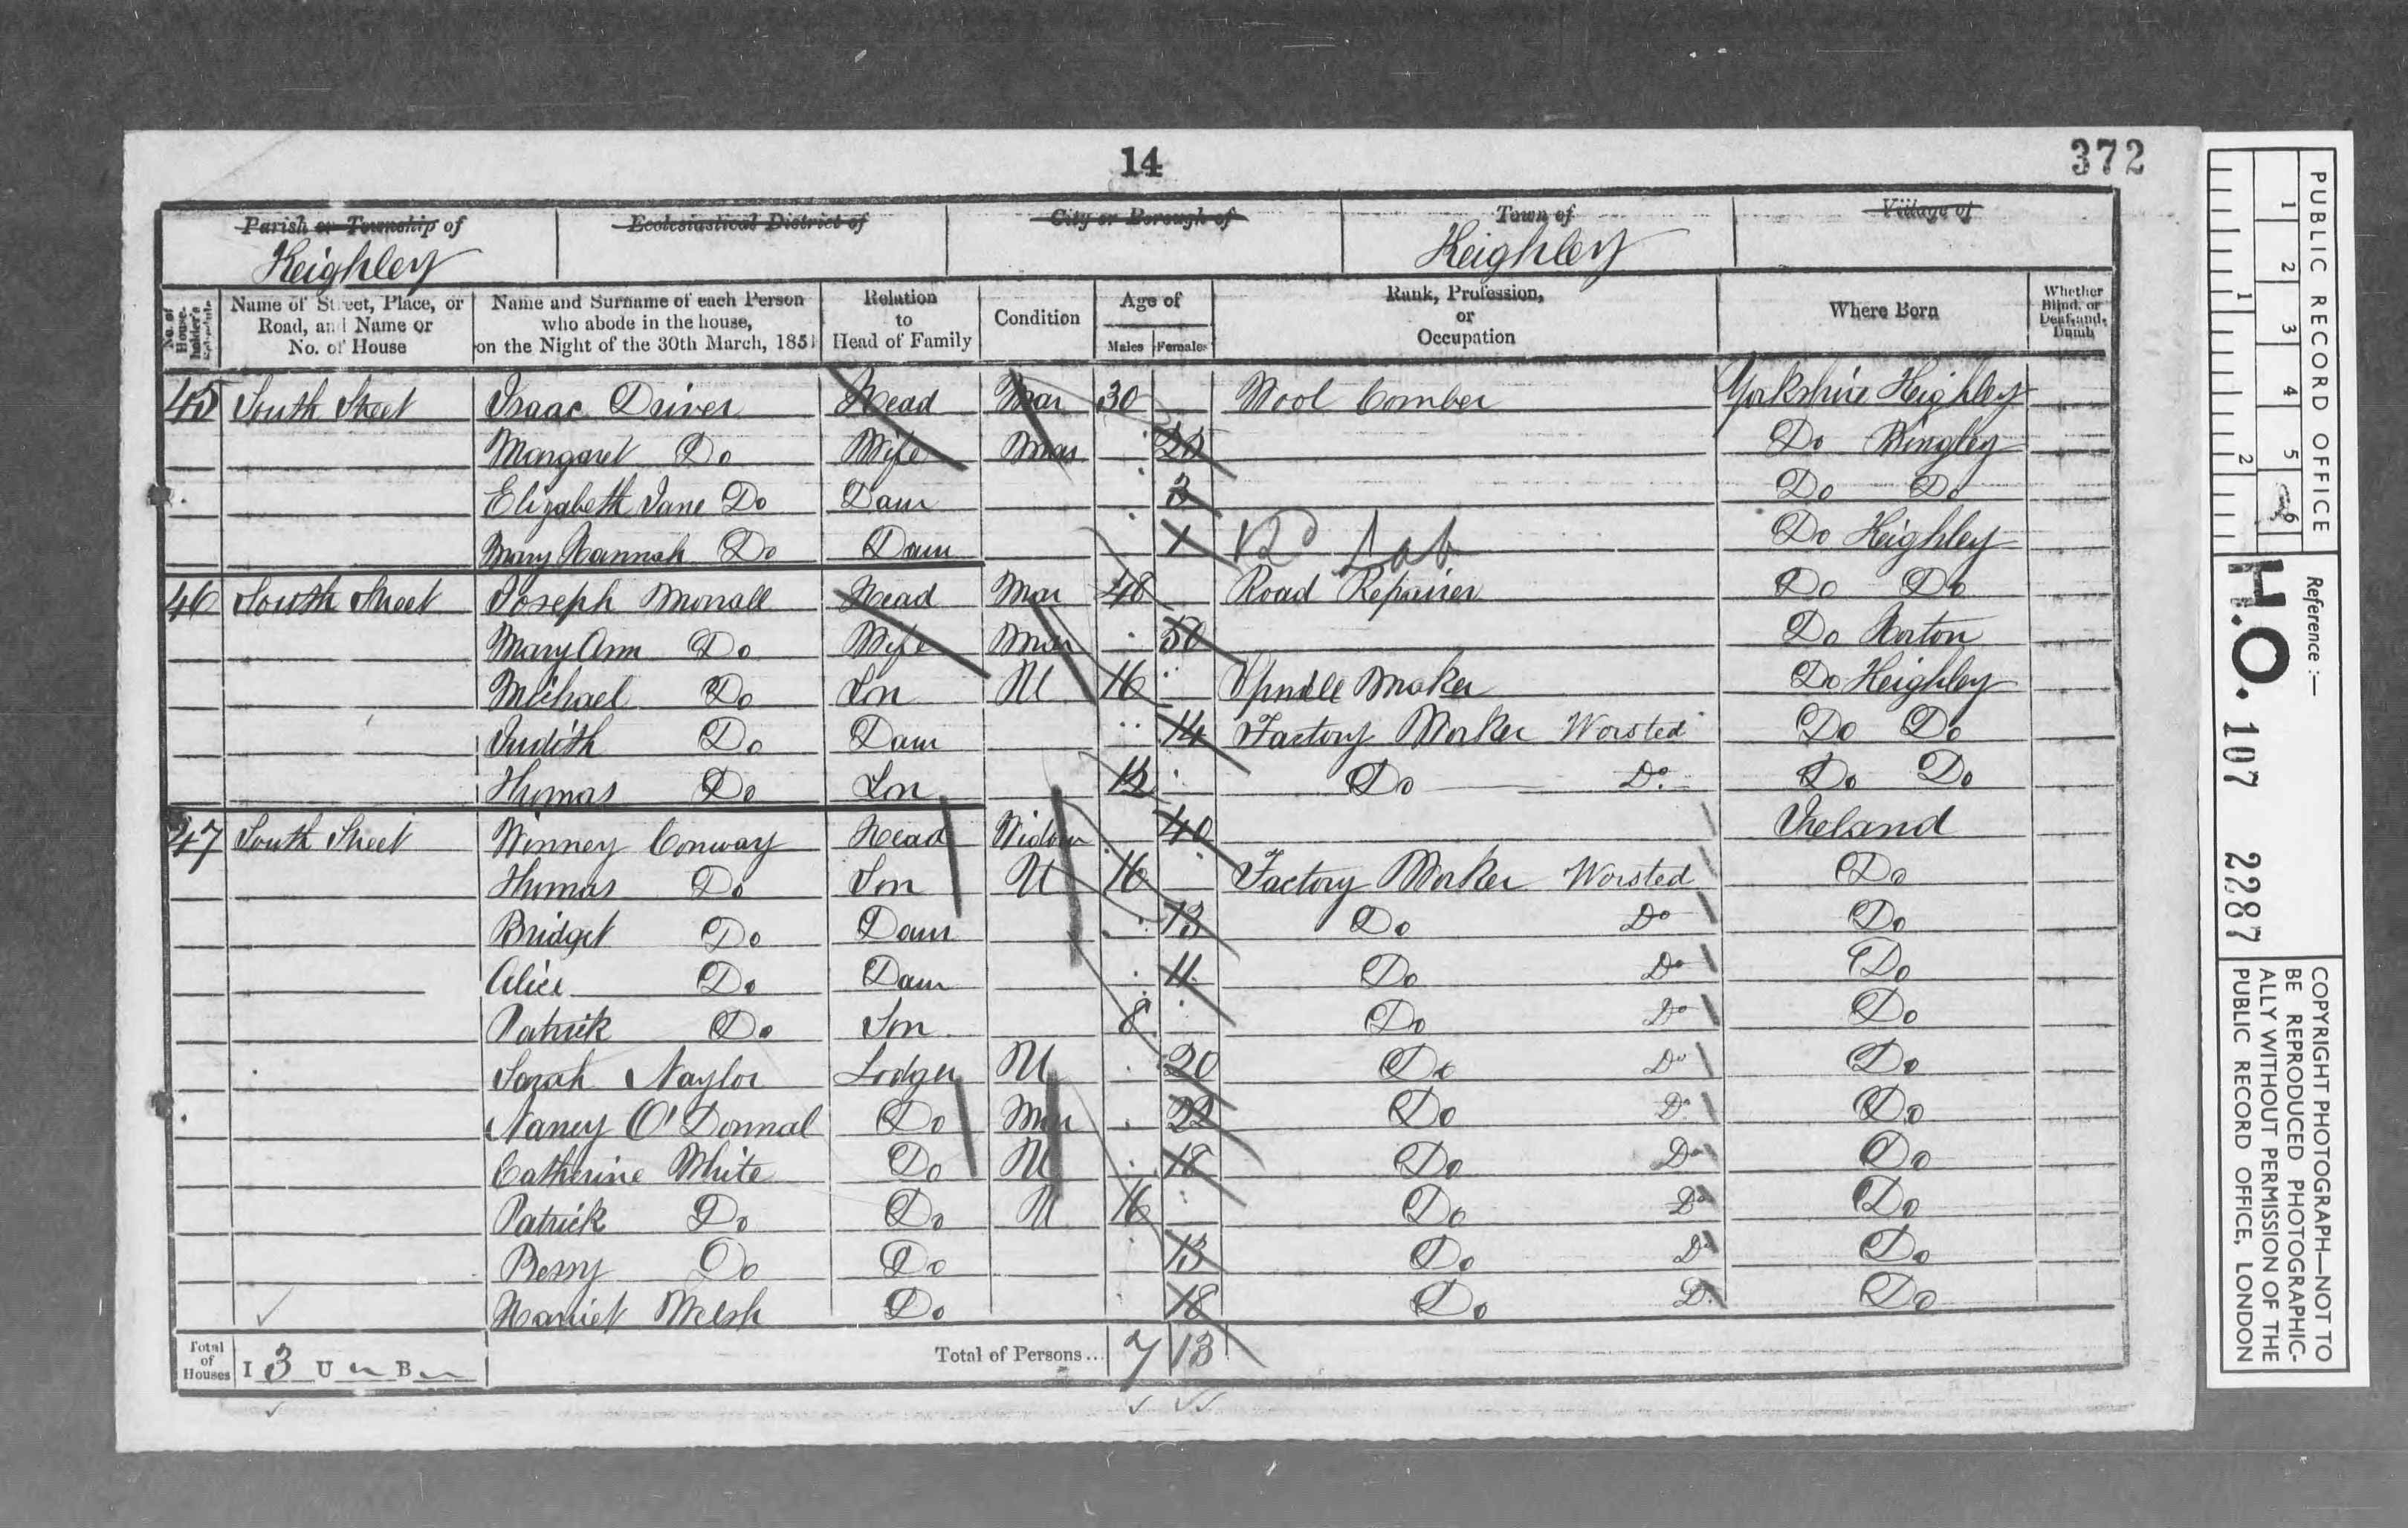 14
372
Parish or Township of
Keighley
Ecclesiastical District of
City or Borough of
Town of
Keighley
Village of
No. of House-holder's Schedule
Name of Street, Place, or Road, and Name or No. of House
Name and Surname of each Person who abode in the house, on the Night of the 30th March, 1851
Relation to Head of Family
Condition
Age of
Males Females
Rank, Profession, or Occupation
Where Born
Whether Blind, or Deaf-and-Dumb
45 South Street Isaac Driver Head Mar 30 Wool Comber Yorkshire Keighley
Margaret Do Wife Mar Do Bingley
Elizabeth Jane Do Daur 3 Do Do
Mary Hannah Do Daur 1 Do Keighley
Rd Lab
46 South Street Joseph Monall Head Mar 48 Road Repairer Do Do
Mary Ann Do Wife Mar 50 Do Horton
Michael Do Son U 16 Spindle Maker Do Keighley
Judith Do Daur 14 Factory Worker Worsted Do Do
Thomas Do Son 12 Do Do Do Do
47 South Street Winney Conway Head Widow 40 Ireland
Thomas Do Son U 16 Factory Worker Worsted Do
Bridget Do Daur 13 Do Do Do
Alice Do Daur 11 Do Do Do
Patrick Do Son 8 Do Do Do
Sarah Naylor Lodger U 20 Do Do Do
Nancy O'Donnal Do Mar 22 Do Do Do
Catherine White Do U 18 Do Do Do
Patrick Do Do U 16 Do Do Do
Bessy Do Do 13 Do Do Do
Harriet Welsh Do 18 Do Do Do
Total of Houses I 3 U B
Total of Persons... 7 13
PUBLIC RECORD OFFICE
1 2 3 4 5 6
1 2
Reference :-
H.O. 107 2287
COPYRIGHT PHOTOGRAPH—NOT TO
BE REPRODUCED PHOTOGRAPHIC-
ALLY WITHOUT PERMISSION OF THE
PUBLIC RECORD OFFICE, LONDON